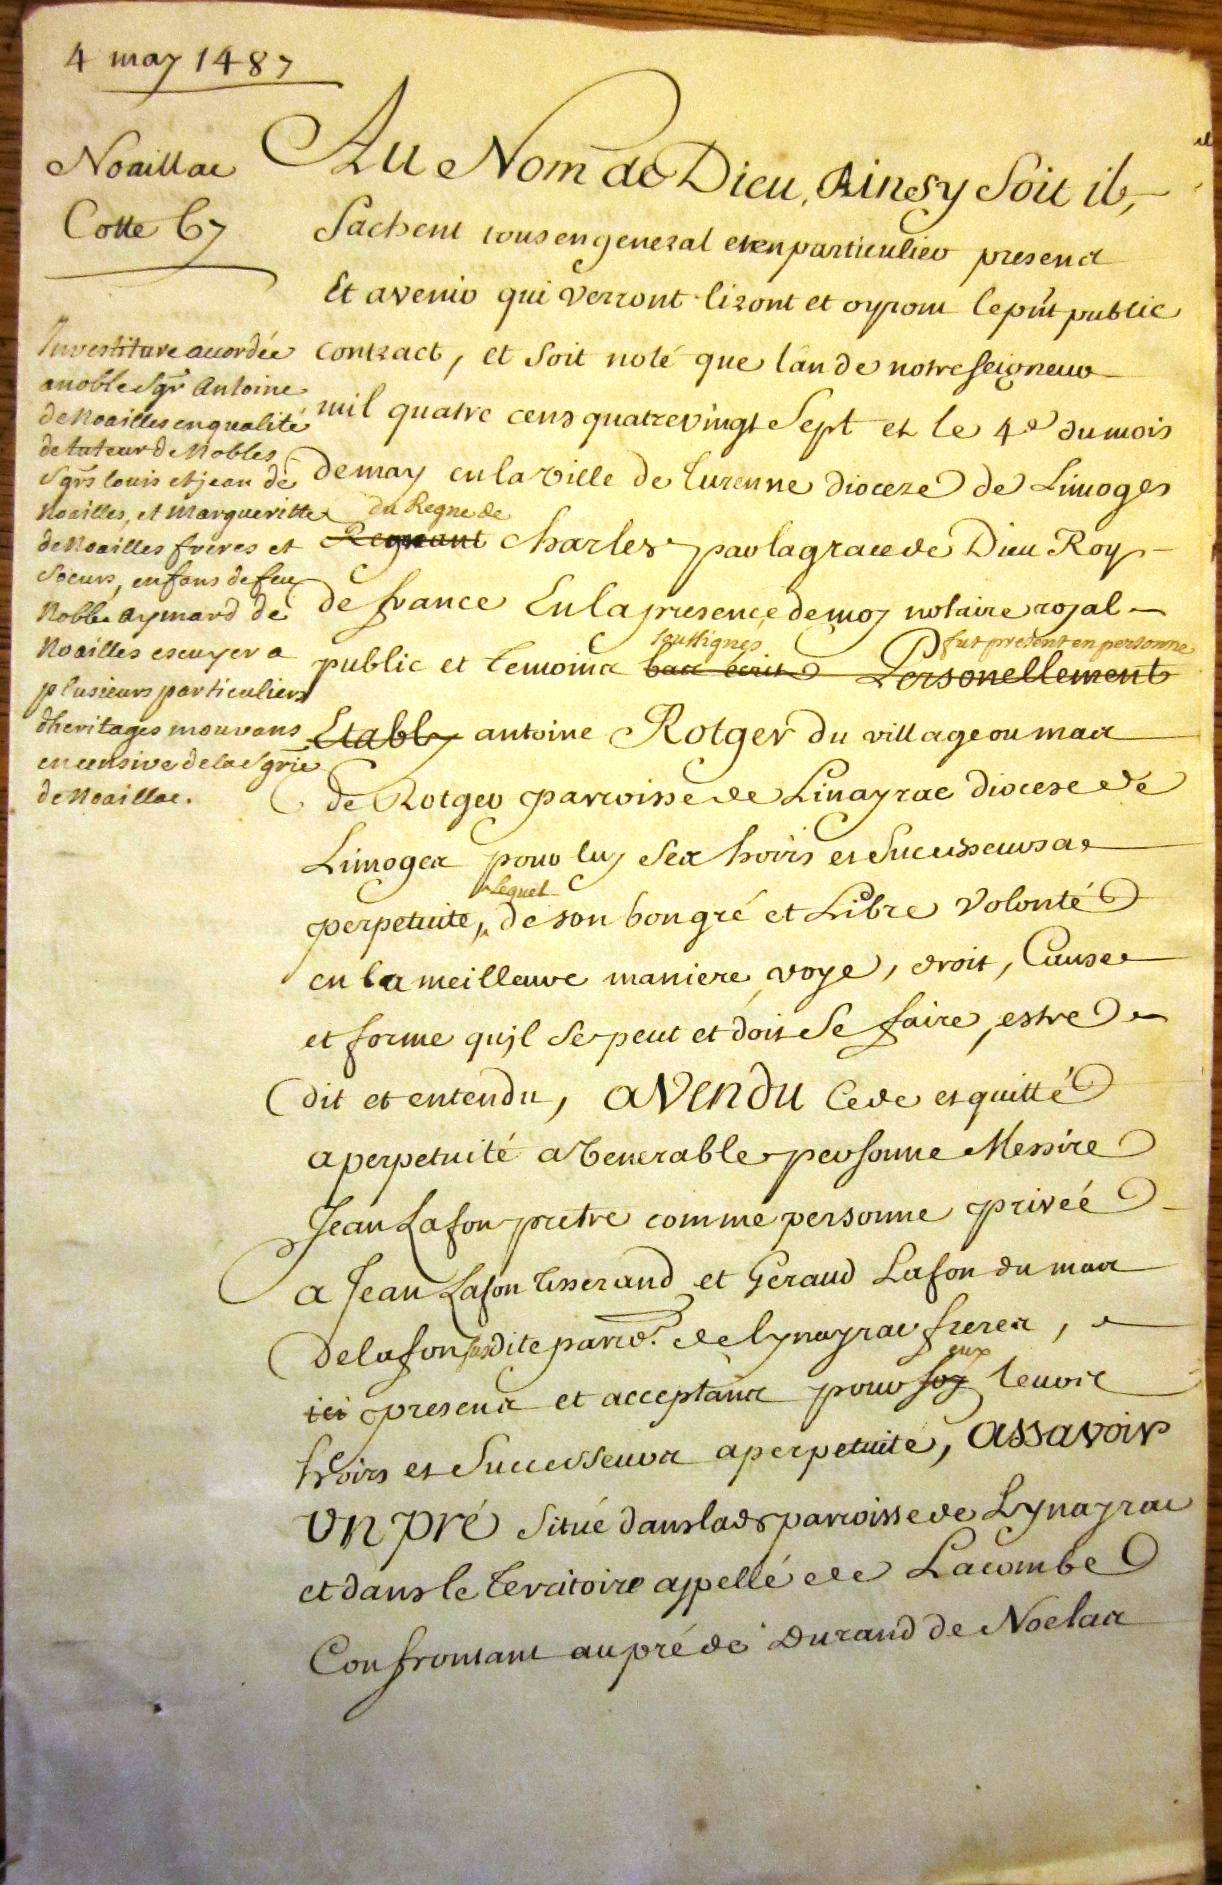 4 may 1487
Noaillac
Cotte 67
Investiture accordée
a noble Sgr Antoine
de Noailles en qualité
de tuteur de Nobles
Sgrs louis et jean de
Noailles, et Margueritte
de Noailles freres et
Soeurs, enfans de feu
Noble aymard de
Noailles escuyer a
plusieurs particuliers
dheritages mouvans
en censive de la Sgrie
de Noaillac.
Au Nom de Dieu, Ainsy Soit il,
Sachent tous en general et en particulier presens
Et avenir qui verront lizont et oyront le pnt public
contract, et Soit noté que lan de notre seigneur
mil quatre cens quatrevingt Sept et le 4e du mois
de may en la ville de Turenne dioceze de Limoges
du Regne de
Regnant Charles par la grace de Dieu Roy
de france En la presence de moy notaire royal
soussignes fut present en personne
public et temoins bas ecrits Personellement
Etably antoine Rotger du village ou mas
de Rotger parroisse de Linayrac diocese de
Limoges pour luy Ses hoirs et Successeurs a
lequel
perpetuite, de son bon gré et Libre Volonté
en la meilleure maniere, voye, droit, Cause
et forme quil Se peut et doit Se faire, estre
dit et entendu, a Vendu Cede et quitté
a perpetuité a Venerable personne Messire
Jean Lafon pretre comme personne privée
a Jean Lafon tisserand et Geraud Lafon du mas
Delafon susdite parroe. de lynayrac freres,
eux
ici presens et acceptans pour soy leurs
hoirs et Successeurs a perpetuite, assavoir
Un pré Situé dans lade parroisse de Lynayrac
et dans le Territoire appellé de Lacombe
Confrontant au pré de Durand de Noelas